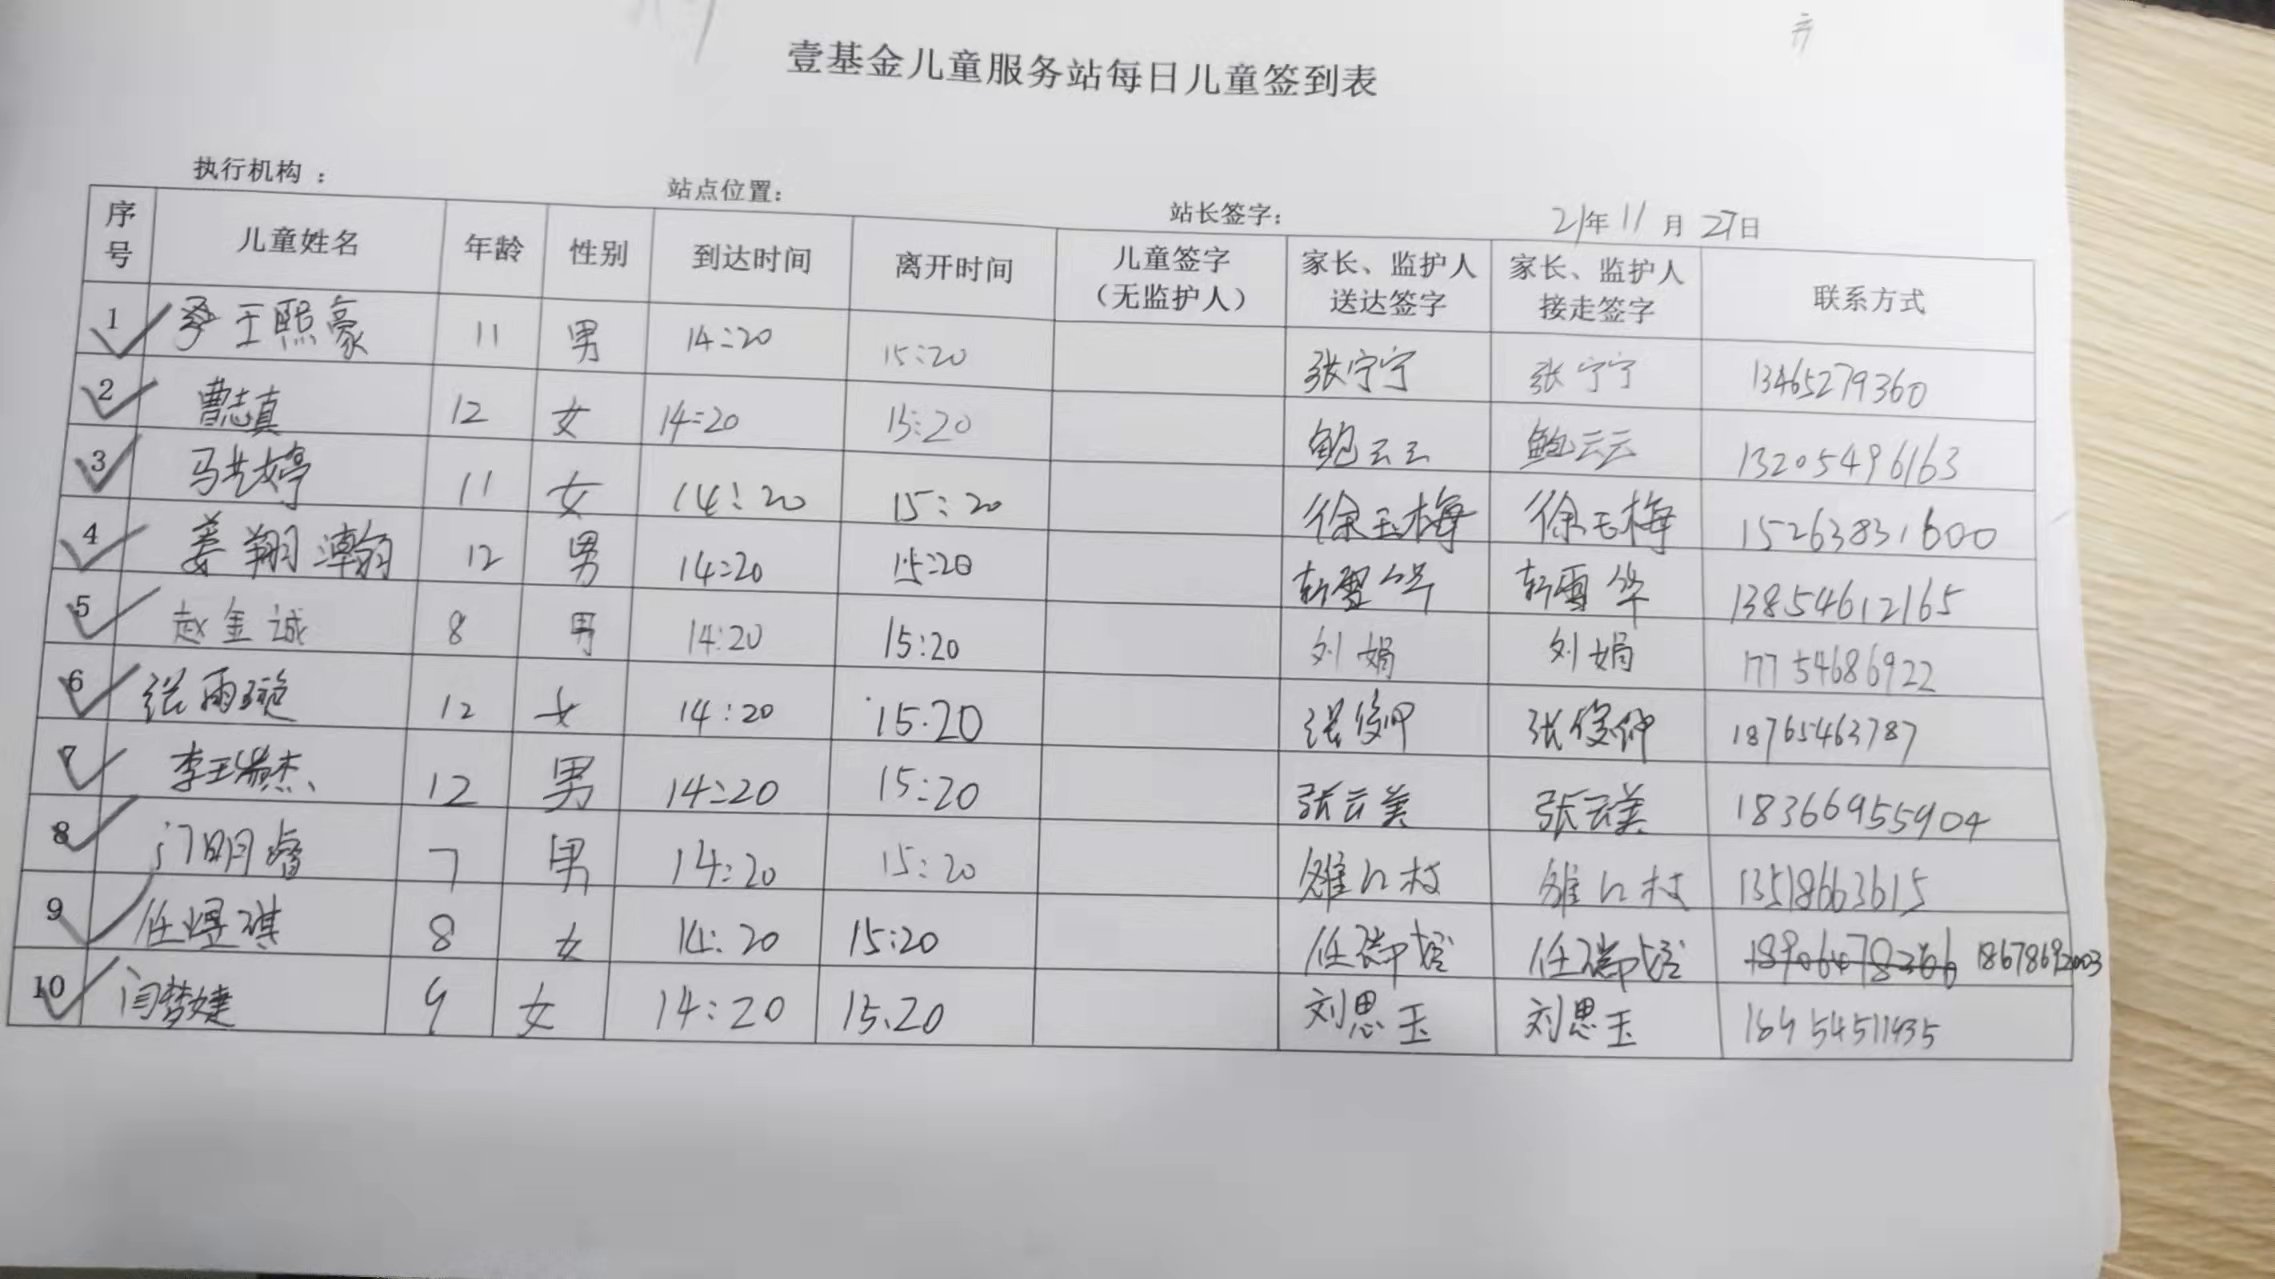 壹基金儿童服务站每日儿童签到表
执行机构： 站点位置： 站长签字： 21年 11月 27日
序号 儿童姓名 年龄 性别 到达时间 离开时间 儿童签字（无监护人） 家长、监护人送达签字 家长、监护人接走签字 联系方式
1 王熙豪 11 男 14:20 15:20 张宁宁 张宁宁 13465279360
2 曹志真 12 女 14:20 15:20 鲍云云 鲍云云 13205496163
3 马艺婷 11 女 14:20 15:20 徐玉梅 徐玉梅 15263831600
4 姜翔 12 男 14:20 15:20 靳雪华 靳雪华 13854612165
5 赵金诚 8 男 14:20 15:20 刘娟 刘娟 17754686922
6 张雨璇 12 女 14:20 15:20 张俊 张俊 18765463787
7 李王 杰 12 男 14:20 15:20 张云美 张云美 18366955904
8 门明睿 7 男 14:20 15:20 13518663615
9 任煜琪 8 女 14:20 15:20 任 任 18678692003
10 闫梦婕 9 女 14:20 15.20 刘思玉 刘思玉